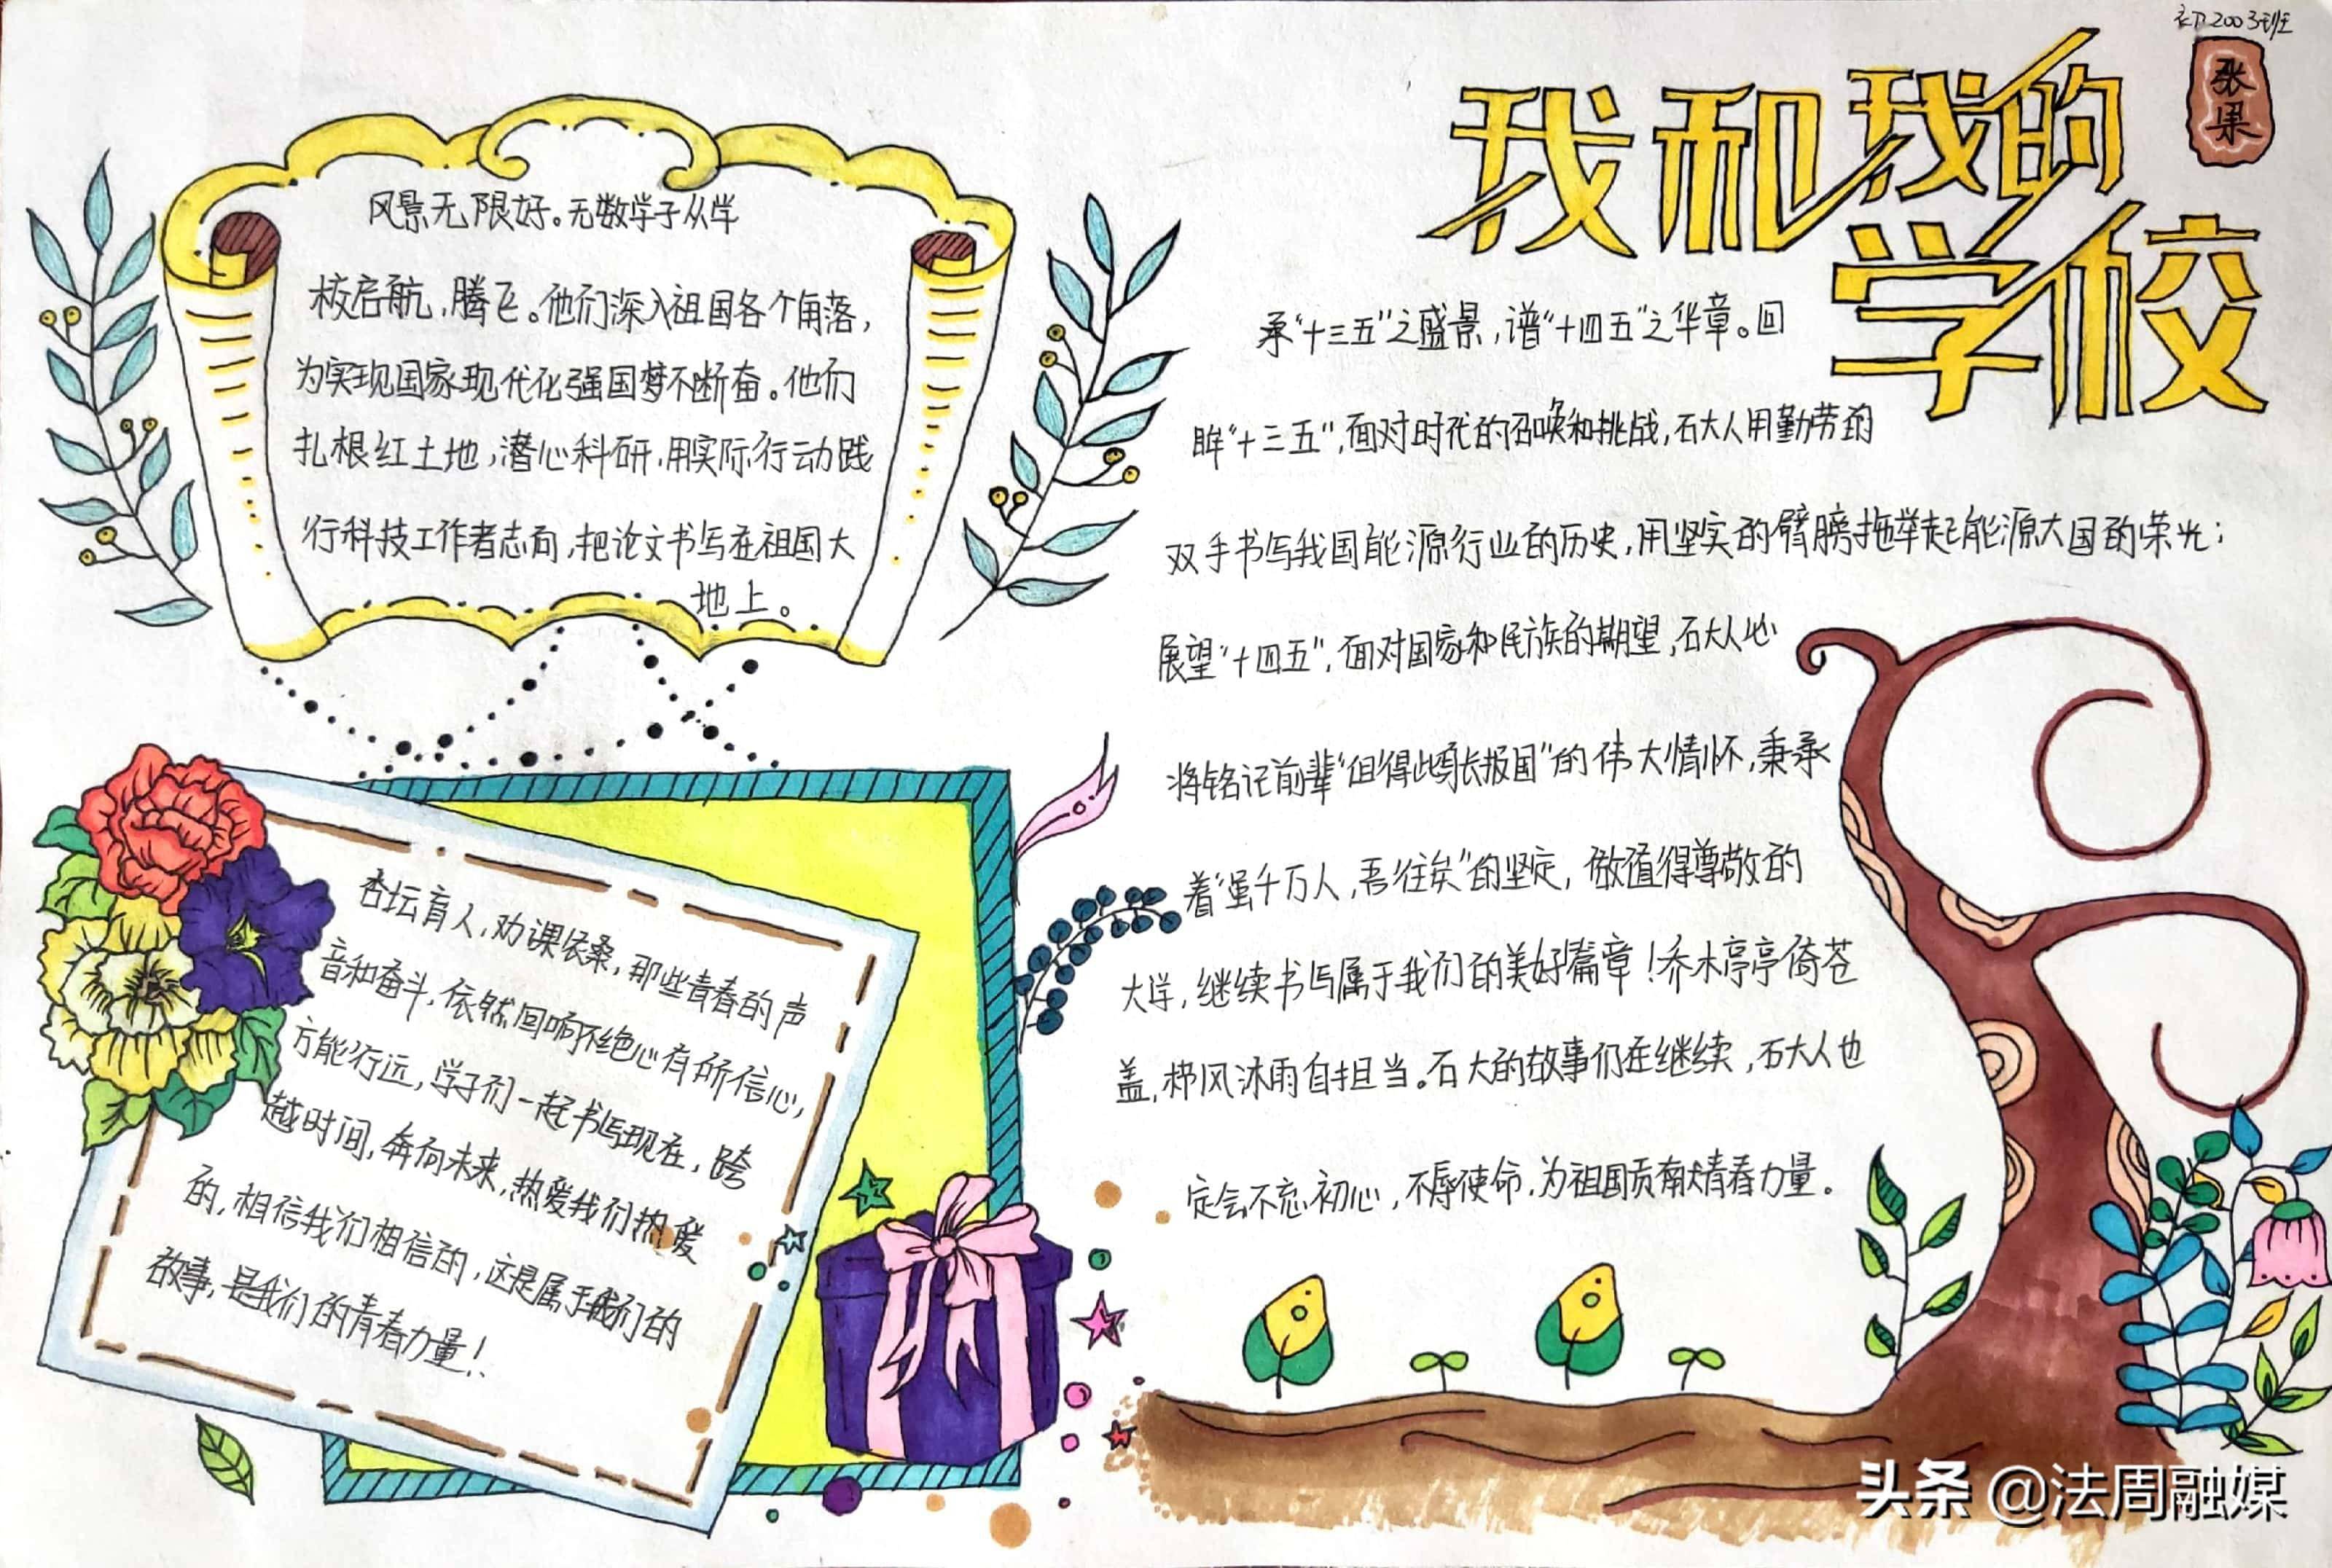 2003班
张果
我和我的
学校
风景无限好。无数学子从学
校启航,腾飞。他们深入祖国各个角落,
为实现国家现代化强国梦不断奋。他们
扎根红土地,潜心科研,用实际行动践
行科技工作者志向,把论文书写在祖国大
地上。
承“十三五”之盛景,谱“十四五”之华章。回
眸“十三五”,面对时代的召唤和挑战,石大人用勤劳的
双手书写我国能源行业的历史,用坚实的臂膀拖举起能源大国的荣光;
展望“十四五”,面对国家和民族的期望,石大人也
将铭记前辈“但得此身长报国”的伟大情怀,秉承
着“虽千万人,吾往矣”的坚定,做值得尊敬的
大学,继续书写属于我们的美好篇章!乔木亭亭倚苍
盖,栉风沐雨自担当。石大的故事们在继续,石大人也
定会不忘初心,不辱使命,为祖国贡献大青春力量。
杏坛育人,劝课农桑,那些青春的声
音和奋斗,依然回响不绝心有所信心,
方能行远,学子们一起书写现在,跨
越时间,奔向未来,热爱我们热爱
的,相信我们相信的,这是属于我们的
故事,是我们的青春力量!
头条 @法周融媒